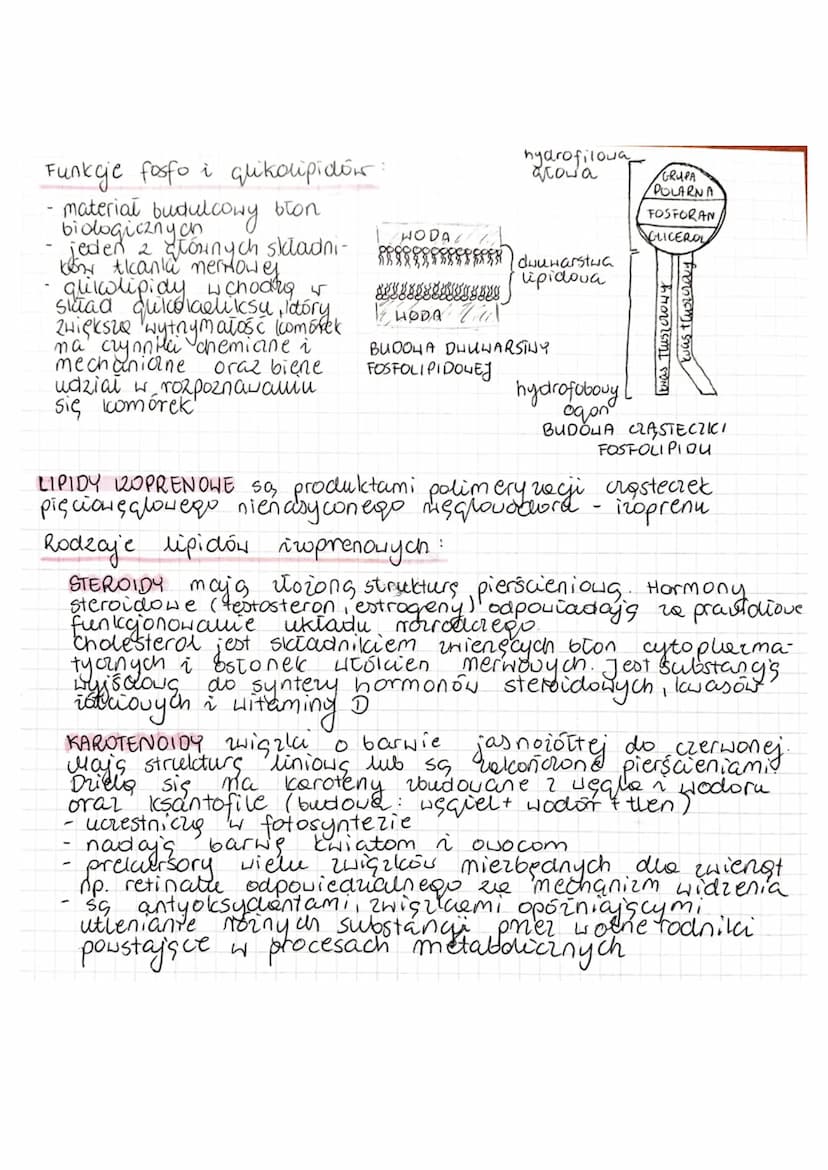 Funkcje fosfo i glikolipidów:
- materiał budulcowy błon
biologicznych
- jeden z głównych składni-
ków tkanki nerwowej
- glikolipidy wchodzą w
skład glikokaliksu, który
zwiększa wytrzymałość komórek
na czynniki chemiczne i
mechaniczne oraz bierze
udział w rozpoznawaniu
się komórek
WODA
WODA
dwuwarstwa
lipidowa
BUDOWA DWUWARSTWY
FOSFOLIPIDOWEJ
hydrofilowa
głowa
GRUPA
POLARNA
FOSFORAN
GLICEROL
kwas tłuszczowy
kwas tłuszczowy
hydrofobowy
ogon
BUDOWA CZĄSTECZKI
FOSFOLIPIDU
LIPIDY IZOPRENOWE są produktami polimeryzacji cząsteczek
pięciowęglowego nienasyconego węglowodoru - izoprenu
Rodzaje lipidów izoprenowych:
STEROIDY mają złożoną strukturę pierścieniową. Hormony
steroidowe (testosteron, estrogeny) odpowiadają za prawidłowe
funkcjonowanie układu rozrodczego.
Cholesterol jest składnikiem zwierzęcych błon cytoplazma-
tycznych i osłonek włókien nerwowych. Jest substancją
wyjściową do syntezy hormonów steroidowych, kwasów
żółciowych i witaminy D
KAROTENOIDY związki o barwie jasnożółtej do czerwonej.
Mają strukturę liniową lub są zakończone pierścieniami.
Dzielą się na karoteny zbudowane z węgla i wodoru
oraz ksantofile (budowa: węgiel + wodór + tlen)
- uczestniczą w fotosyntezie
- nadają barwę kwiatom i owocom
- prekursory wielu związków niezbędnych dla zwierząt
np. retinalu odpowiedzialnego za mechanizm widzenia
- są antyoksydantami, związkami opóźniającymi
utlenianie różnych substancji przez wolne rodniki
powstające w procesach metabolicznych